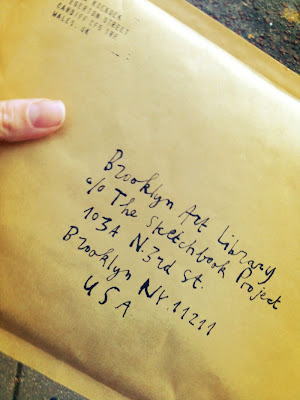 STREET
CARDIFF
WALES, UK
Brooklyn Art Library
c/o The Sketchbook Project
103A N.3rd St.
Brooklyn NY.11211
USA